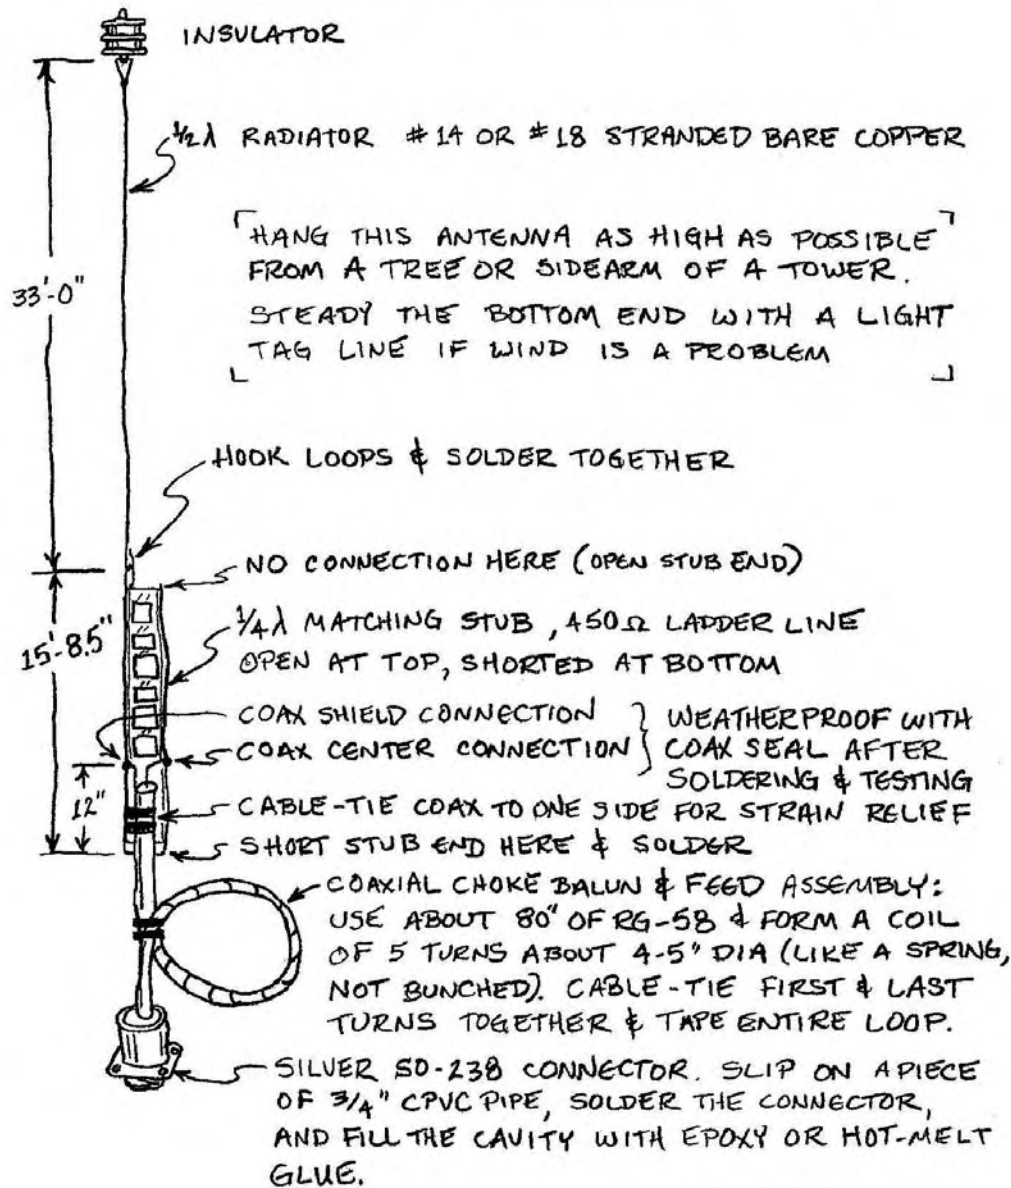 INSULATOR
1/2λ RADIATOR #14 OR #18 STRANDED BARE COPPER
HANG THIS ANTENNA AS HIGH AS POSSIBLE
FROM A TREE OR SIDEARM OF A TOWER.
STEADY THE BOTTOM END WITH A LIGHT
TAG LINE IF WIND IS A PROBLEM
33'-0"
HOOK LOOPS & SOLDER TOGETHER
NO CONNECTION HERE (OPEN STUB END)
1/4λ MATCHING STUB, 450Ω LADDER LINE
OPEN AT TOP, SHORTED AT BOTTOM
15'-8.5"
COAX SHIELD CONNECTION
COAX CENTER CONNECTION
WEATHERPROOF WITH
COAX SEAL AFTER
SOLDERING & TESTING
12"
CABLE-TIE COAX TO ONE SIDE FOR STRAIN RELIEF
SHORT STUB END HERE & SOLDER
COAXIAL CHOKE BALUN & FEED ASSEMBLY:
USE ABOUT 80" OF RG-58 & FORM A COIL
OF 5 TURNS ABOUT 4-5" DIA (LIKE A SPRING,
NOT BUNCHED). CABLE-TIE FIRST & LAST
TURNS TOGETHER & TAPE ENTIRE LOOP.
SILVER SO-238 CONNECTOR. SLIP ON A PIECE
OF 3/4" CPVC PIPE, SOLDER THE CONNECTOR,
AND FILL THE CAVITY WITH EPOXY OR HOT-MELT
GLUE.